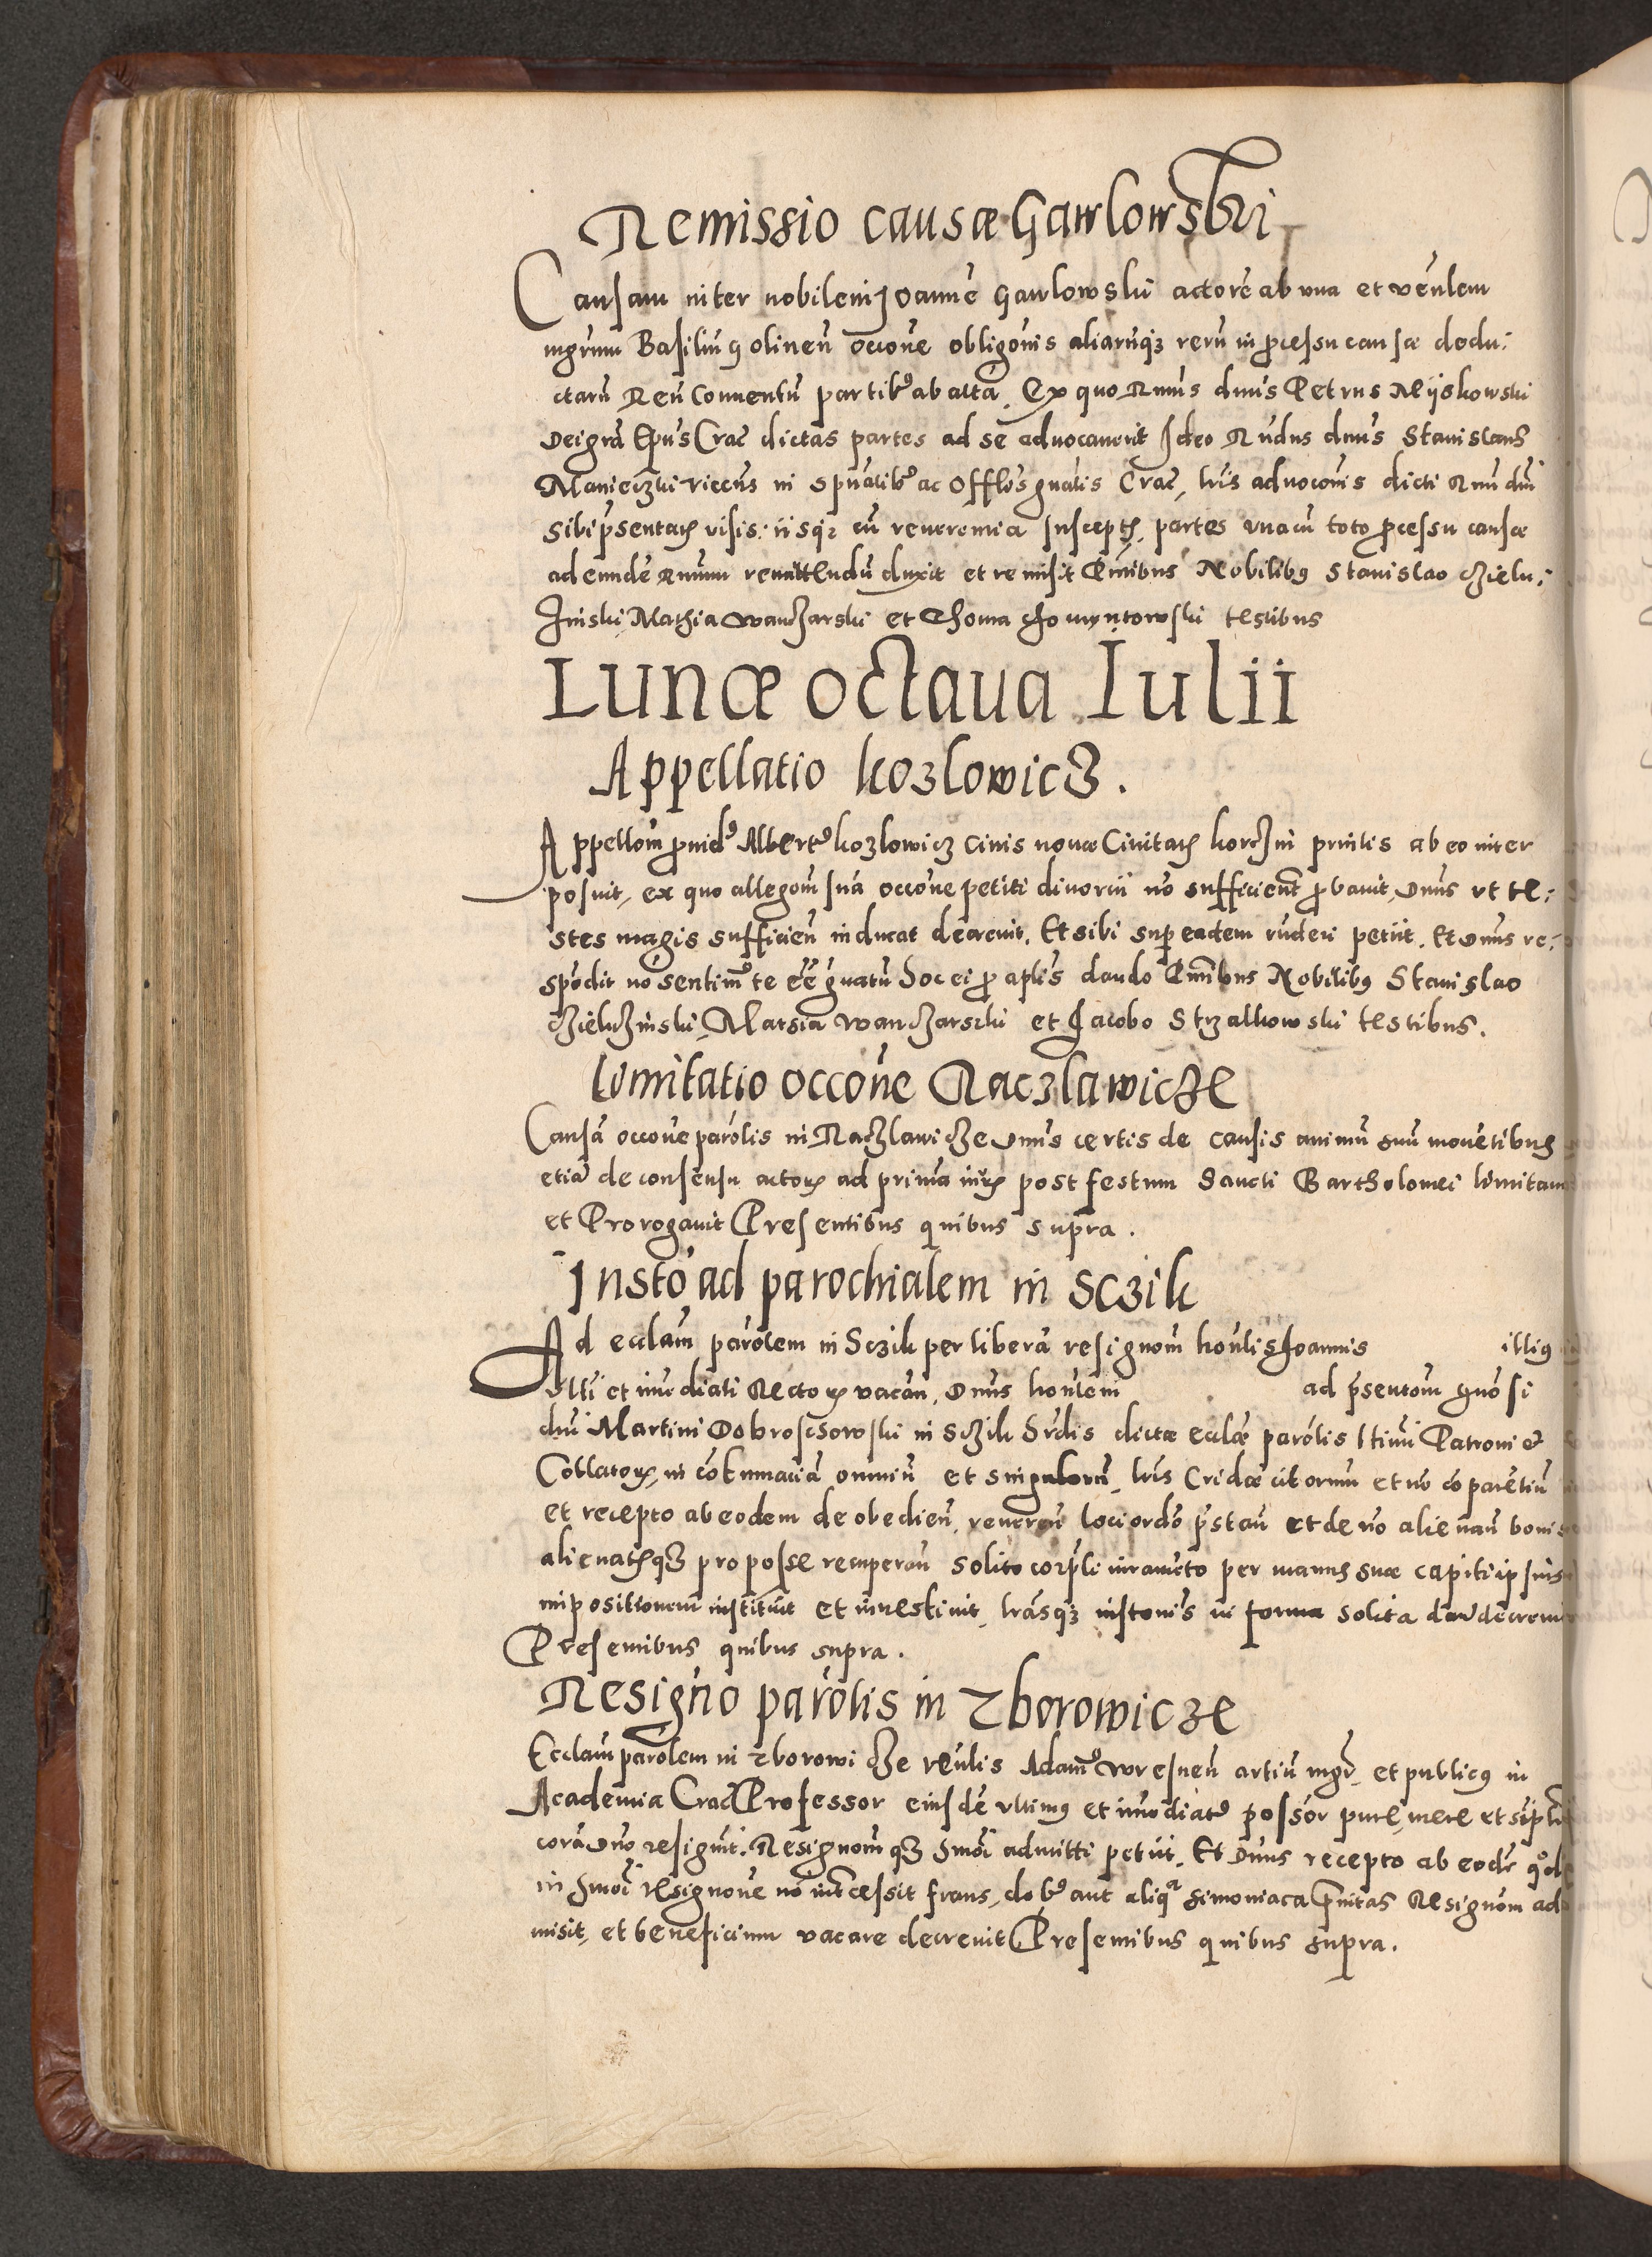 Remissio causæ Gawlowski
Causam inter nobilem Joannē Gawlowski actorē ab una et venlem
mgrum Basiliū golineū occōne obligōnis aliarūq3 rerū in pcessu causæ dedu:
ctarū Reū Conventū partib9 ab altā. Ex quo Rmūs dnus Petrus Myskowski
Dei grā Epūs Crac̄ dictas partes ad se advocaverit Ideo Rndus dnūs Stanislaus
Maniec3ki vicēus in Spūalib9 ac Offlōs gnālis Crac̄, lrīs advocōnis dicti Rmi dni
sibi p̄sentatis visis: iisq3 cū reverentia susceptis, partes unacū toto pcessu causæ
ad eundē Rmum remittendū duxit et remisit Pn̄tibus Nobilibus Stanislao c3ielu:
3inski, Mathia wanc3arski et Thoma Komyntowski testibus
Lunæ octava Iulii
Appellatio ko3lowic3.
Appellom̄ provid9 Albert9 ko3lowic3 civis novæ Civitatis korc3in privilis ab eo inter
posuit, ex quo allegom̄ suā occōne petiti divorcii nō sufficient̄ pbavit, Dnus ut te:
stes magis sufficieū inducat decrevit. Et sibi super eadem videri petiit. Et Dnus re:
spōdit nō sentim9 te eē gvatū hoc ei p aplis dando Pn̄tibus Nobilibus Stanislao
c3ieluc3inski, Matsia wanc3arski et Jacobo Str3alkowski testibus.
Limitatio occōne Rac3lawic3e
Causā occōne parōlis in Rac3lawic3e Dnus certis de causis animū suū movētibus
etiā de consensu actoris ad primā iuris post festum Sancti Bartholomei limitavit
et Prorogavit Presentibus quibus supra.
Instō ad parochialem in Sc3ik
Ad ecclam parōlem in Sc3ik per liberā resignom̄ honlis Joannis illius
ulti et immediati Rectoris vacan, Dnus honlem ad p̄sentom̄ gnōsi
dni Martini Dobroschowski in Sc3ik hrdis dictæ ecclæ parōlis ltimi Patroni et
Collatoris, in cōtumaciā omniū et singulorū, lrīs Cridæ citorum et nō cōparētiū
et recepto ab eodem de obedien, reveren loci ordō p̄stan et de nō alienan bonis
alienatisq3 pro posse recuperan solito corpli iuramēto per manus suæ capiti ipsius
impositionem instituit et investivit, lrasq3 instonis in forma solita dari decrevit
Presentibus quibus supra.
Resigno parōlis in Zborowic3e
Ecclam parōlem in Zborowic3e venlis Adam9 wresneū artiū mgr̄, et publicus in
Academia Crac̄ Professor eiusdē ultimus et immediat9 possōr pure, mere et simplr
corā Dno resignt. Resignom̄q3 hmōi admitti petiit. Et Dnus recepto ab eodē qd
in hmōi resignone nō intcessit fraus, dol9 aut aliqa simoniaca pvitas Resignom̄ ad
misit, et beneficium vacare decrevit Presentibus quibus supra.